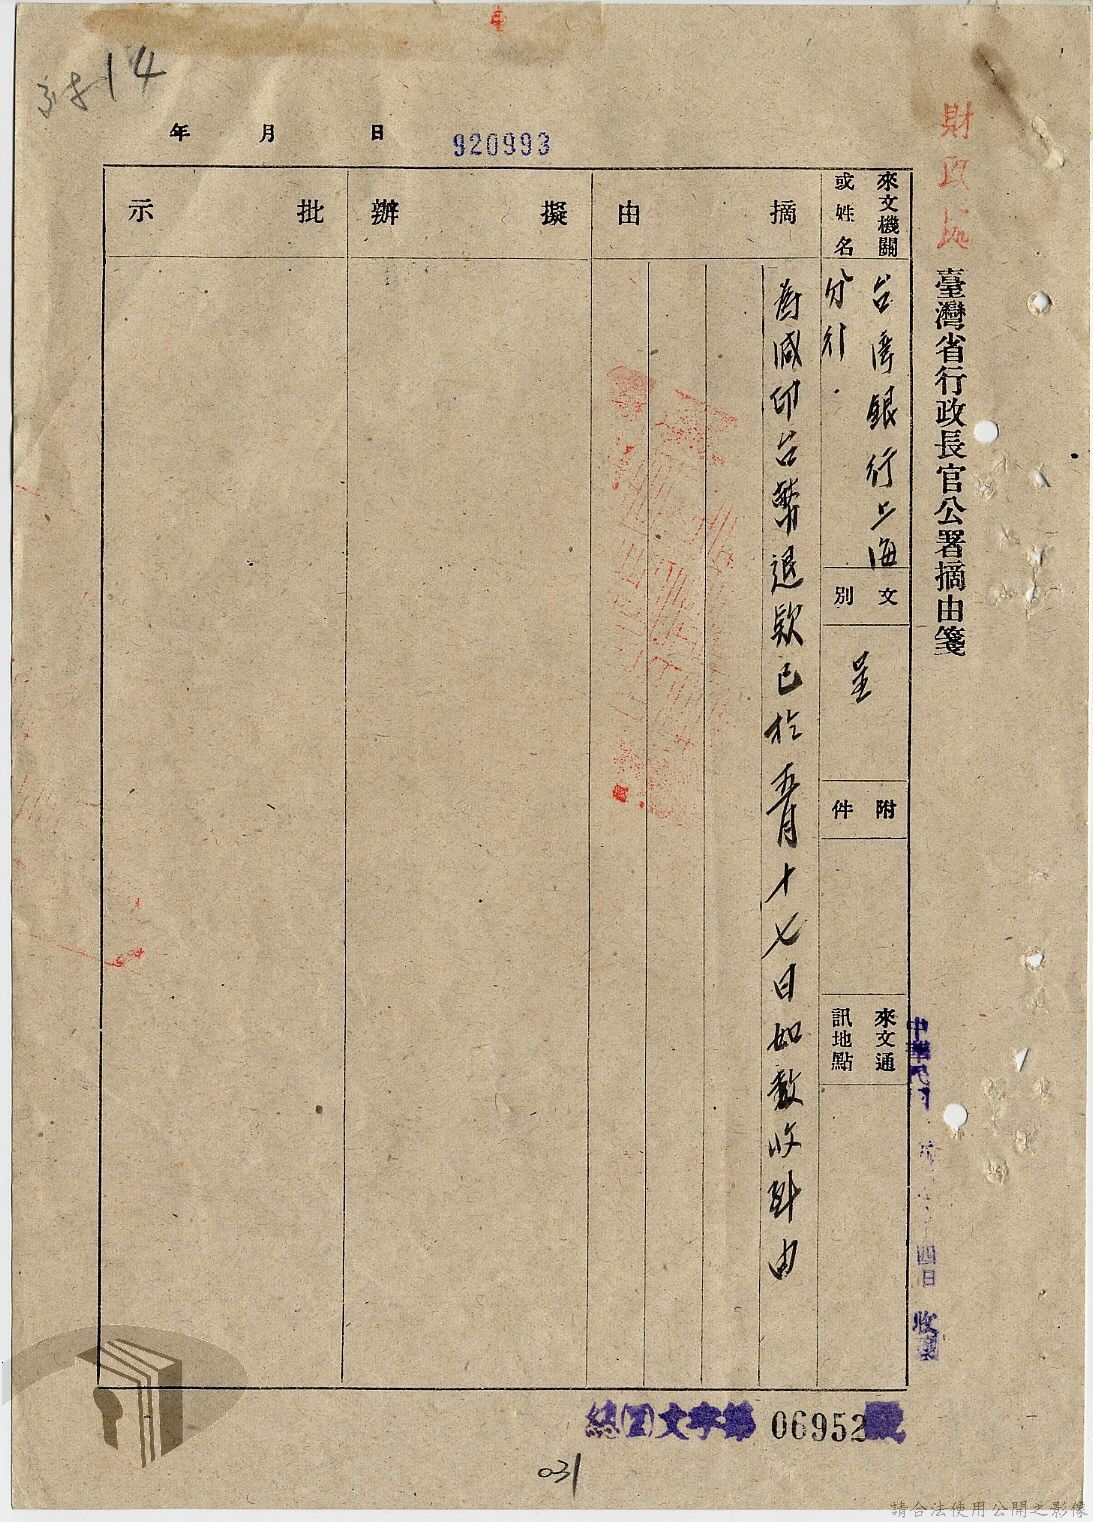 財政處
臺灣省行政長官公署摘由箋
來文機關
或姓名
台灣銀行上海
分行
文別
呈
附件
來文通
訊地點
摘由
為減印台幣退款已於五月十七日如數收到由
擬辦
批示
年 月 日
920993
14
中華民國
四日
收
總文字第 06952 號
031
請合法使用公開之影像